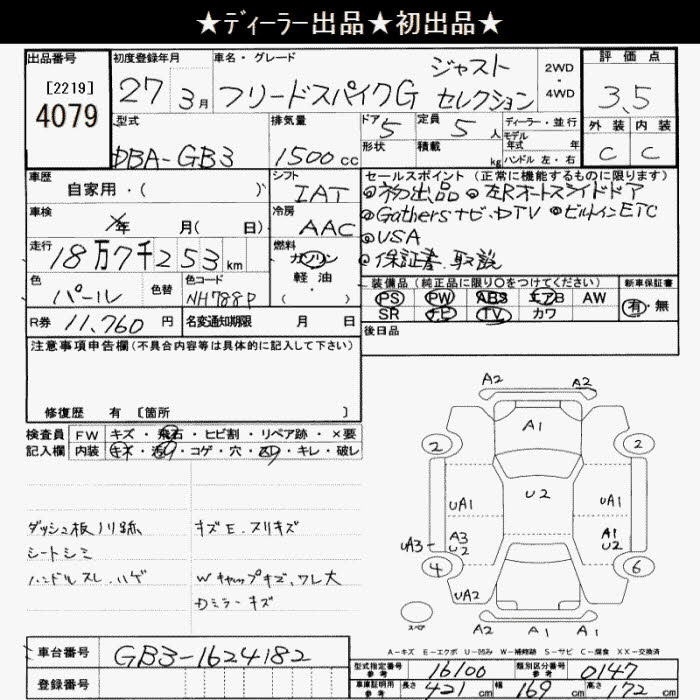 ★ディーラー出品★初出品★
出品番号 初度登録年月 車名・グレード 評価点
[2219]
4079
27年3月 フリードスパイクG ジャスト セレクション 2WD・4WD
3.5
型式 排気量 ドア 定員 ディーラー・並行 外装 内装
DBA-GB3 1500cc 5 5人 モデル年式 年 C C
形状 積載 kg ハンドル 左・右
車歴 シフト セールスポイント(正常に機能するものに限ります)
自家用・( ) IAT ◎初出品 ◎左Rオートスライドドア
車検 冷房 ◎Gathersナビ.DTV ◎ビルトインETC
年 月( 日) AAC ◎USA
走行 燃料 ◎保証書.取説
18万7千253km ガソリン
軽油・
( )
色 色替 色コード 装備品(純正品に限り○をつけてください) 新車保証書
パール NH788P PS PW ABS エアB AW 有・無
R券 11,760円 名変通知期限 月 日 SR ナビ TV カワ
注意事項申告欄(不具合内容等は具体的に記入して下さい) 後日品
修復歴 有 [箇所 ]
検査員 FW キズ・飛石・ヒビ割・リペア跡・×要
記入欄 内装 キズ・汚れ・コゲ・穴・凹・キレ・破レ
ダッシュ板ノリ跡 キズE.スリキズ
シートシミ
ハンドルスレ.ハゲ Wキャップキズ.ワレ大
Dミラーキズ
A2 A2
A1
2 2
U2
UA1 UA1
A3 A1
UA3 U2 U2
4 6
UA2
スペア A2 A1 A1
A-キズ E-エクボ U-凹み W-補修跡 S-サビ C-腐食 XX-交換済
車台番号 GB3-1624182
登録番号
型式指定番号 参考 16100 類別区分番号 参考 0147
車庫証明用 参考 長さ 421cm 幅 169cm 高さ 172cm